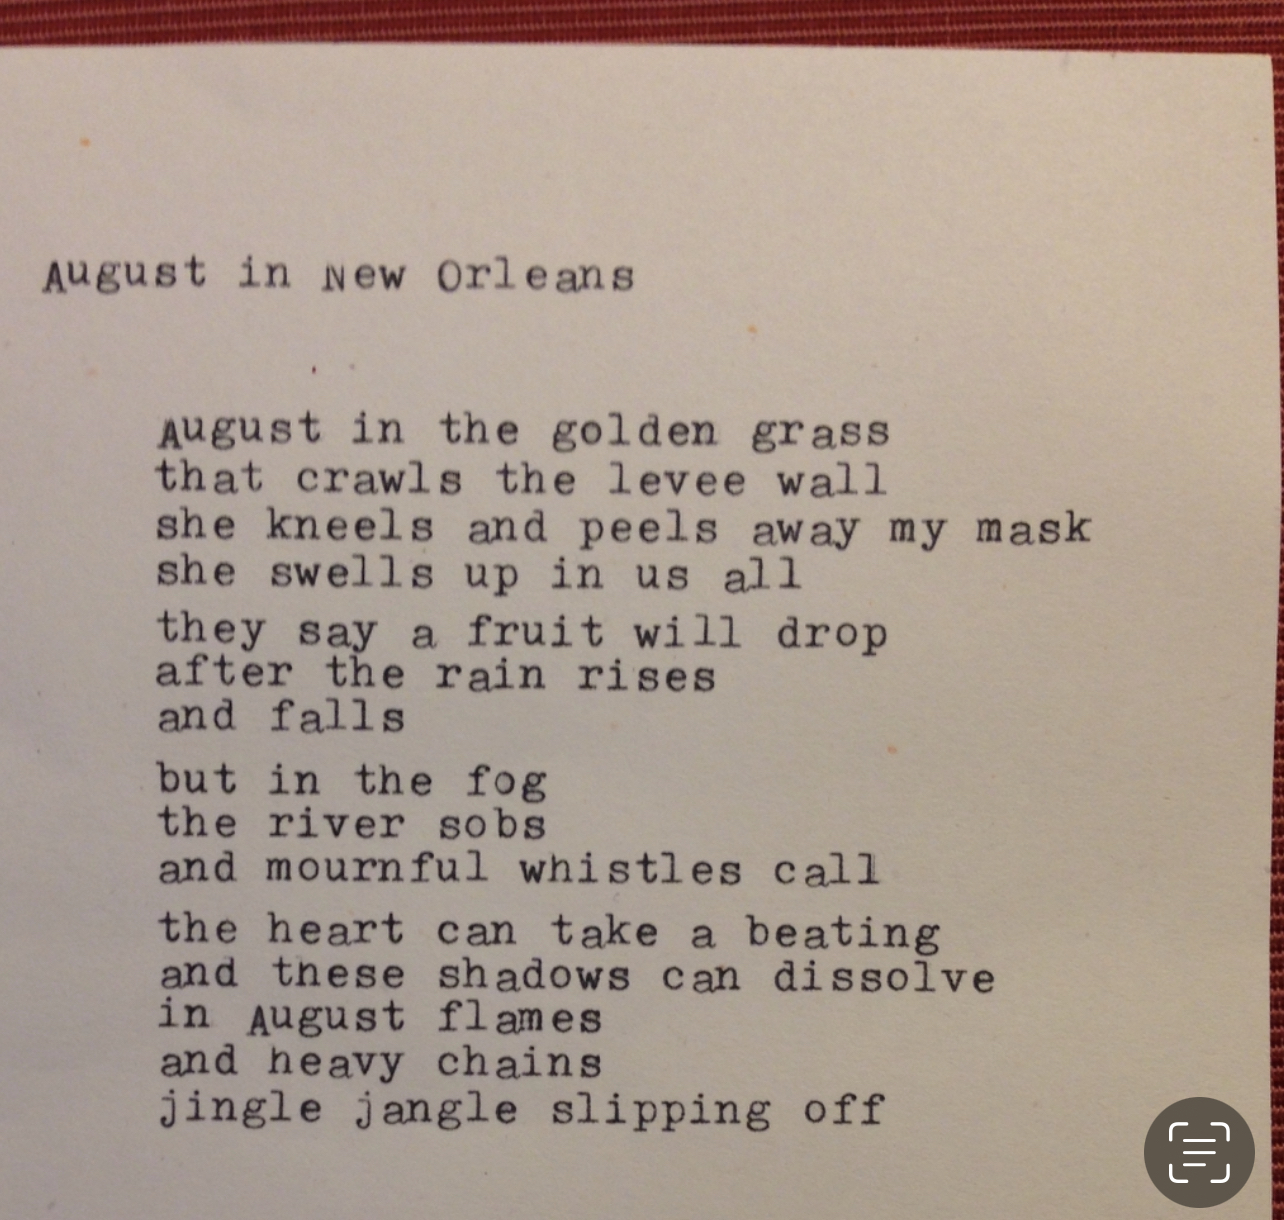 August in New Orleans
August in the golden grass
that crawls the levee wall
she kneels and peels away my mask
she swells up in us all
they say a fruit will drop
after the rain rises
and falls
but in the fog
the river sobs
and mournful whistles call
the heart can take a beating
and these shadows can dissolve
in August flames
and heavy chains
jingle jangle slipping off